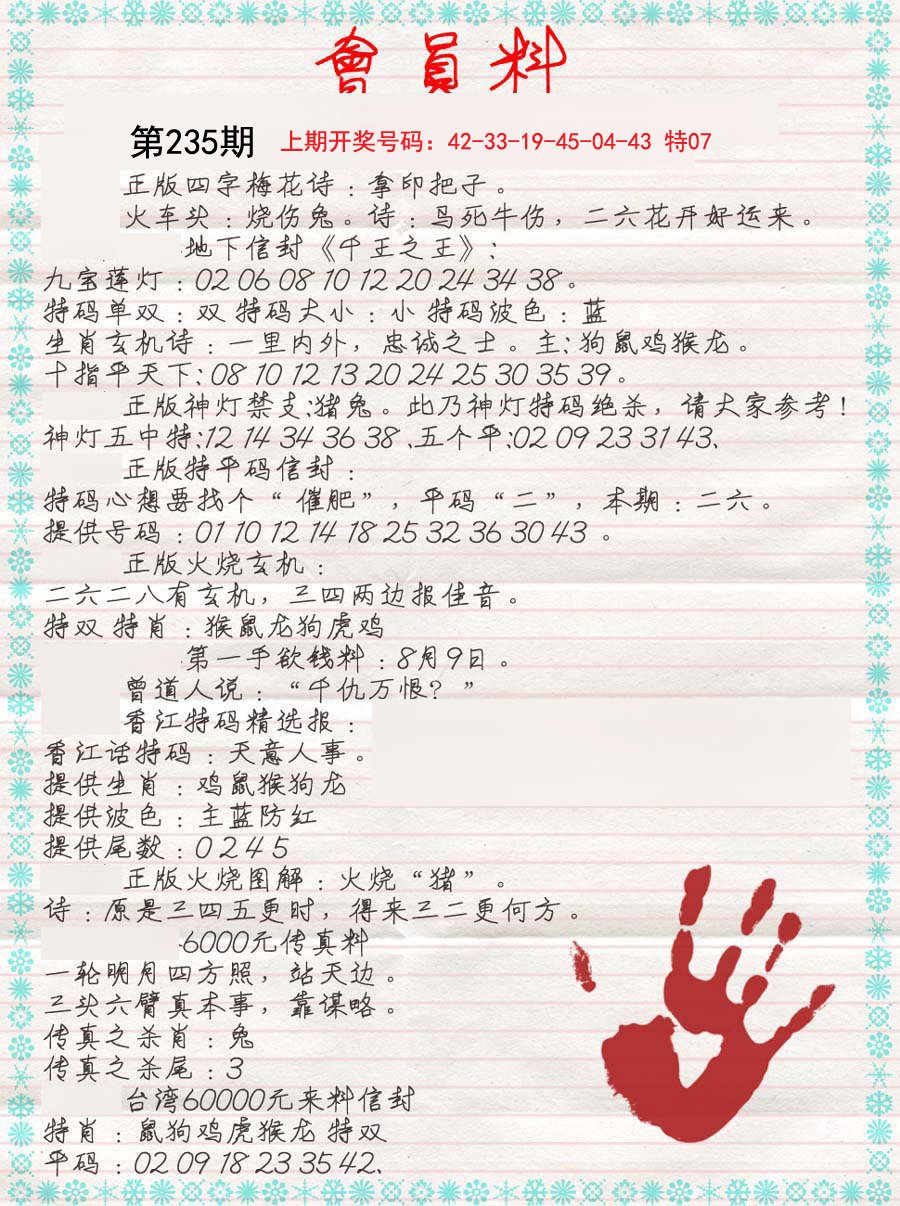 會員料
第235期 上期开奖号码：42-33-19-45-04-43 特07
正版四字梅花诗：拿印把子。
火车头：烧伤兔。诗：鸟死牛伤，二六花开好运来。
地下信封《千王之王》：
九宝莲灯：02 06 08 10 12 20 24 34 38。
特码单双：双 特码大小：小 特码波色：蓝
生肖玄机诗：一里内外，忠诚之士。主：狗鼠鸡猴龙。
十指平天下：08 10 12 13 20 24 25 30 35 39。
正版神灯禁支：猪兔。此乃神灯特码绝杀，请大家参考！
神灯五中特：12 14 34 36 38、五个平：02 09 23 31 43、
正版特平码信封：
特码心想要找个“催肥”，平码“二”，本期：二六。
提供号码：01 10 12 14 18 25 32 36 30 43 。
正版火烧玄机：
二六二八有玄机，三四两边报佳音。
特双 特肖：猴鼠龙狗虎鸡
第一手欲钱料：8月9日。
曾道人说：“千仇万恨？”
香江特码精选报：
香江话特码：天意人事。
提供生肖：鸡鼠猴狗龙
提供波色：主蓝防红
提供尾数：0 2 4 5
正版火烧图解：火烧“猪”。
诗：原是三四五更时，得来三二更何方。
6000元传真料
一轮明月四方照，站天边。
三头六臂真本事，靠谋略。
传真之杀肖：兔
传真之杀尾：3
台湾60000元来料信封
特肖：鼠狗鸡虎猴龙 特双
平码：02 09 18 23 35 42、